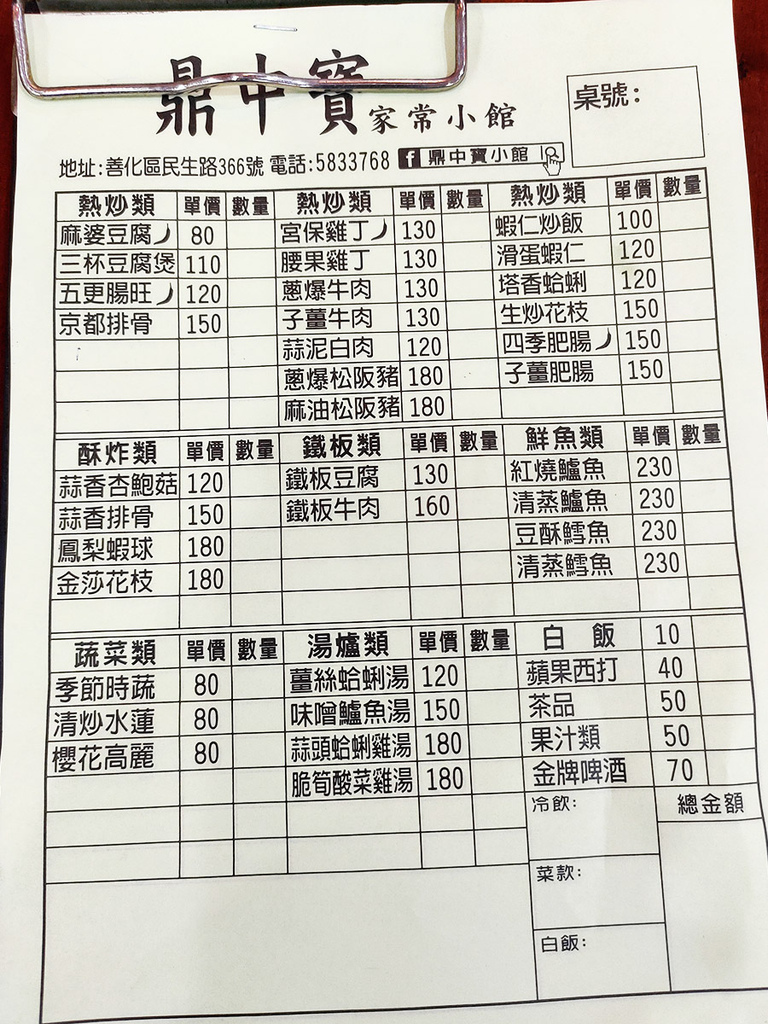 鼎中寶家常小館
桌號:
地址:善化區民生路366號 電話:5833768 f 鼎中寶小館
熱炒類 單價 數量 熱炒類 單價 數量 熱炒類 單價 數量
麻婆豆腐 80 宮保雞丁 130 蝦仁炒飯 100
三杯豆腐煲 110 腰果雞丁 130 滑蛋蝦仁 120
五更腸旺 120 蔥爆牛肉 130 塔香蛤蜊 120
京都排骨 150 子薑牛肉 130 生炒花枝 150
蒜泥白肉 120 四季肥腸 150
蔥爆松阪豬 180 子薑肥腸 150
麻油松阪豬 180
酥炸類 單價 數量 鐵板類 單價 數量 鮮魚類 單價 數量
蒜香杏鮑菇 120 鐵板豆腐 130 紅燒鱸魚 230
蒜香排骨 150 鐵板牛肉 160 清蒸鱸魚 230
鳳梨蝦球 180 豆酥鱈魚 230
金莎花枝 180 清蒸鱈魚 230
蔬菜類 單價 數量 湯爐類 單價 數量 白飯 10
季節時蔬 80 薑絲蛤蜊湯 120 蘋果西打 40
清炒水蓮 80 味噌鱸魚湯 150 茶品 50
櫻花高麗 80 蒜頭蛤蜊雞湯 180 果汁類 50
脆筍酸菜雞湯 180 金牌啤酒 70
冷飲: 總金額
菜款:
白飯: